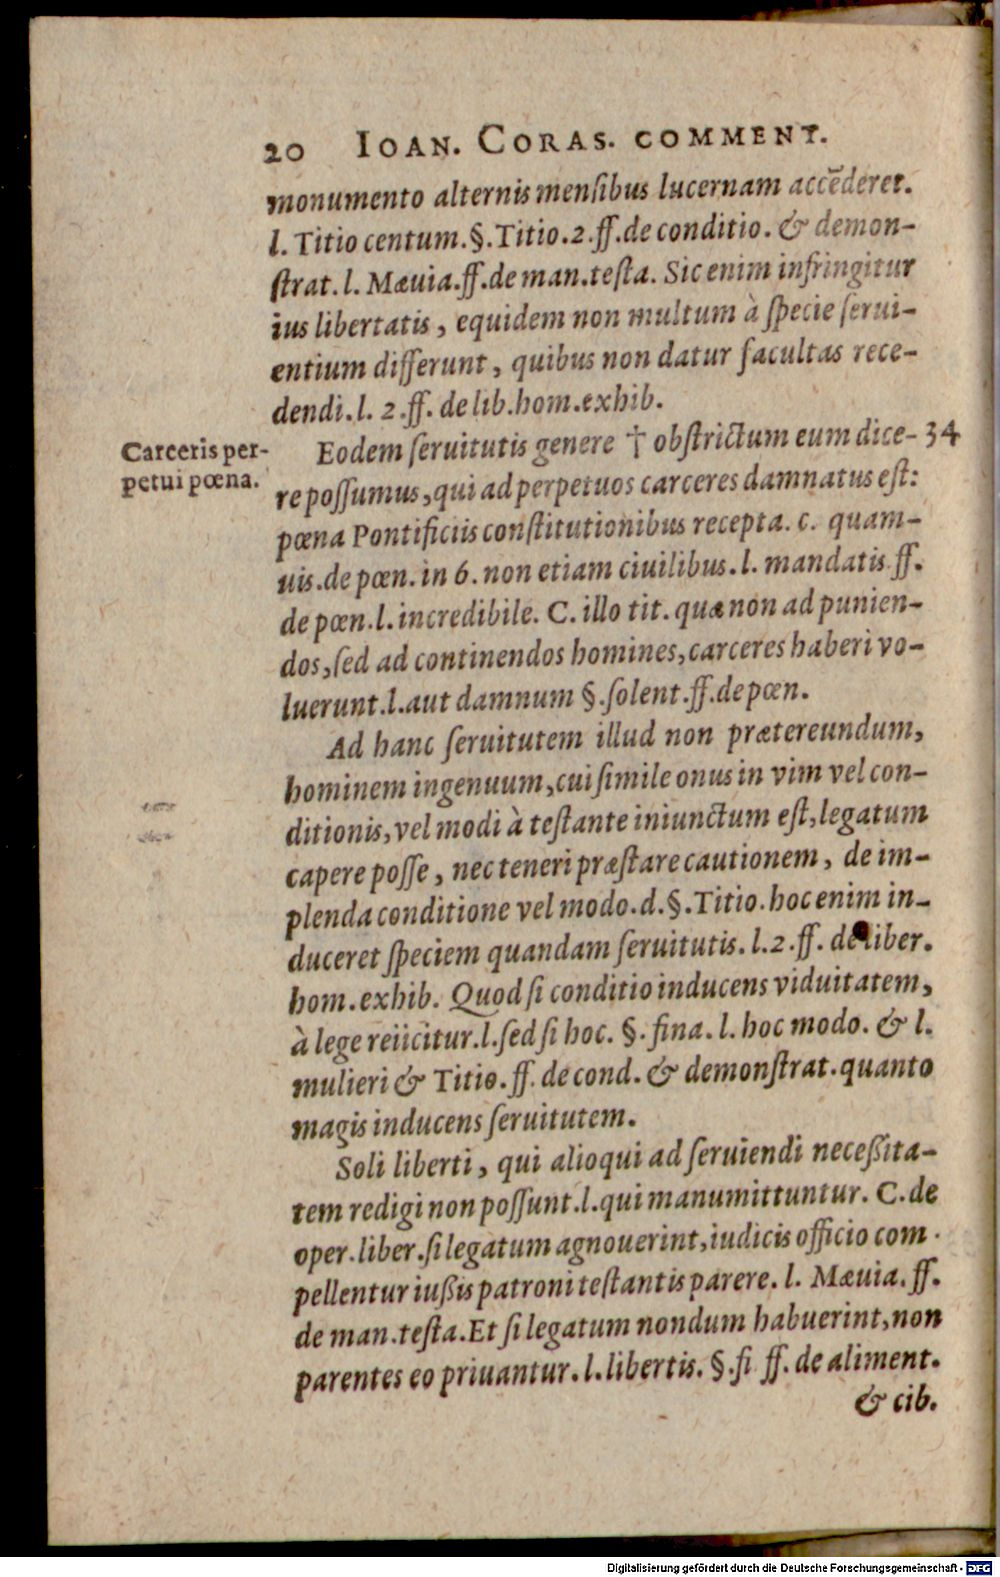 20 IOAN. CORAS. COMMENT.
monumento alternis mensibus lucernam accēderet.
l. Titio centum.§.Titio.2.ff.de conditio. & demon-
ſtrat. l. Mæuia.ff.de man.teſta. Sic enim infringitur
ius libertatis, equidem non multum à ſpecie ſerui-
entium differunt, quibus non datur facultas rece-
dendi.l. 2.ff. de lib.hom.exhib.
Carceris per-
petui pœna.
Eodem ſeruitutis genere † obſtrictum eum dice- 34
re poſſumus,qui ad perpetuos carceres damnatus eſt:
pœna Pontificiis conſtitutionibus recepta. c. quam-
uis.de pœn. in 6. non etiam ciuilibus.l. mandatis ff.
de pœn.l.incredibile. C. illo tit. quæ non ad punien-
dos,ſed ad continendos homines,carceres haberi vo-
luerunt.l.aut damnum §.ſolent.ff.de pœn.
Ad hanc ſeruitutem illud non prætereundum,
hominem ingenuum,cui ſimile onus in vim vel con-
ditionis,vel modi à teſtante iniunctum eſt,legatum
capere poſſe, nec teneri præſtare cautionem, de im-
plenda conditione vel modo.d.§.Titio.hoc enim in-
duceret ſpeciem quandam ſeruitutis.l.2.ff. de liber.
hom.exhib. Quod ſi conditio inducens viduitatem,
à lege reiicitur.l.ſed ſi hoc. §. fina. l. hoc modo. & l.
mulieri & Titio.ff. de cond. & demonſtrat.quanto
magis inducens ſeruitutem.
Soli liberti, qui alioqui ad ſeruiendi neceßita-
tem redigi non poſſunt.l.qui manumittuntur. C.de
oper.liber.ſi legatum agnouerint,iudicis officio com-
pellentur iußis patroni teſtantis parere.l. Mæuia.ff.
de man.teſta.Et ſi legatum nondum habuerint,non
parentes eo priuantur.l.libertis. §.fi ff. de aliment.
& cib.
Digitalisierung gefördert durch die Deutsche Forschungsgemeinschaft - DFG